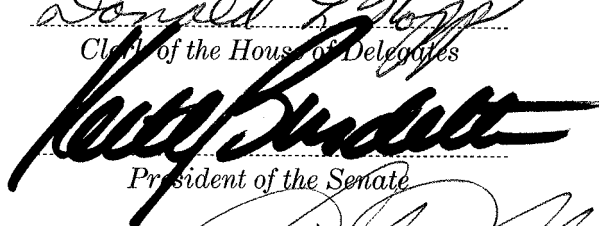 Donald L Kopp
Clerk of the House of Delegates
Keith Burdette
President of the Senate